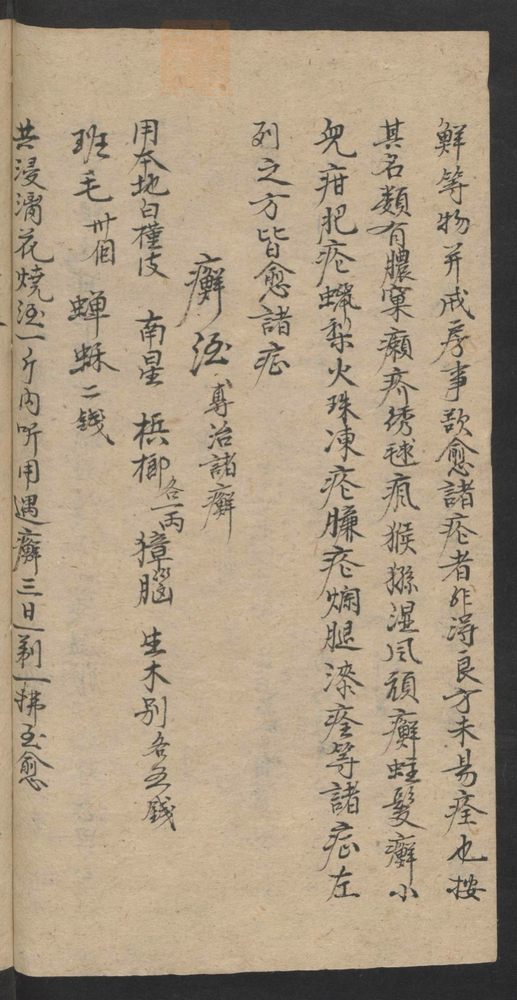 鮮等物并戒房事欲愈諸疮者非得良方未易痊也按
其名類有膿窠癩疥綉毬瘋猴猻湿风頑癣蛀髮癣小
兒疳肥疮蠟梨火珠凍疮臁疮爛腿漆痊等諸症左
列之方皆愈諸症
癣酒專治諸癣
用本地白槿皮 南星 梹榔各一両 獐腦 生木別各五錢
班毛卅個 蟬蘇二錢
共浸滴花燒酒一斤內听用遇癣三日剃一拂至愈